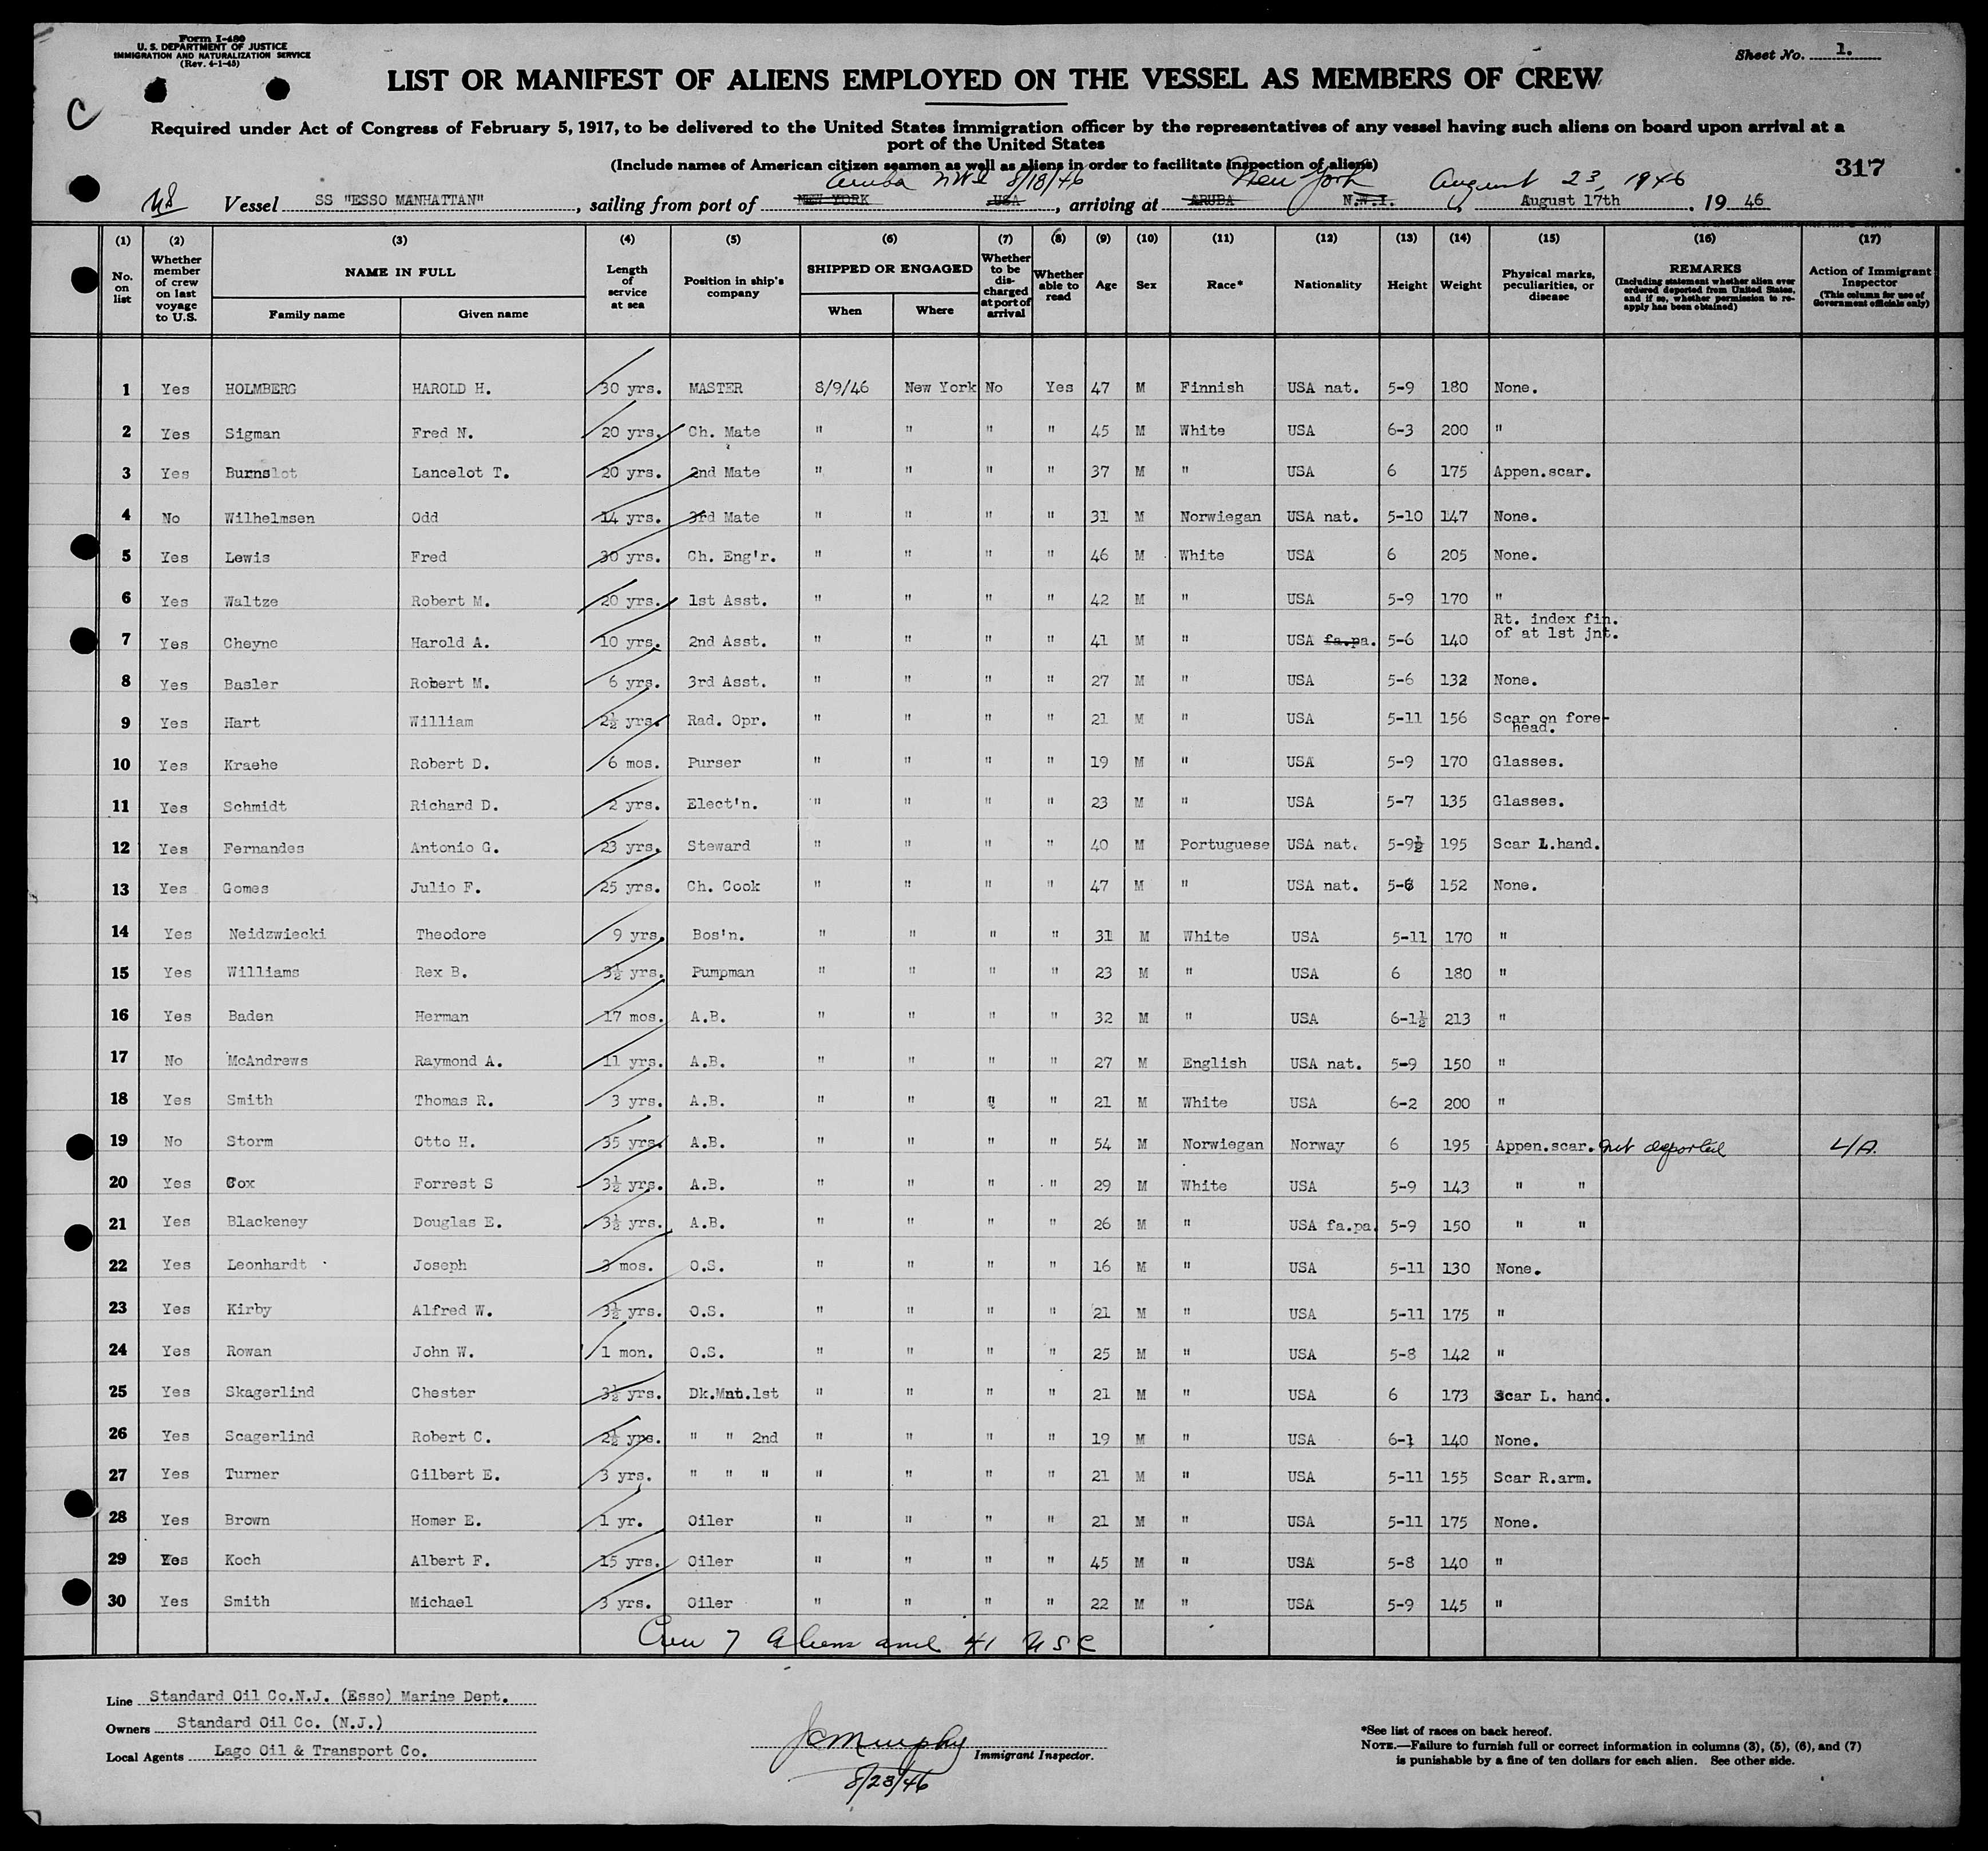 Form I-480
U. S. DEPARTMENT OF JUSTICE
IMMIGRATION AND NATURALIZATION SERVICE
(Rev. 4-1-45)
Sheet No. 1.
C
LIST OR MANIFEST OF ALIENS EMPLOYED ON THE VESSEL AS MEMBERS OF CREW
Required under Act of Congress of February 5, 1917, to be delivered to the United States immigration officer by the representatives of any vessel having such aliens on board upon arrival at a
port of the United States
(Include names of American citizen seamen as well as aliens in order to facilitate inspection of aliens)
317
Aruba NWI 8/18/46 New York August 23, 1946
Vessel SS "ESSO MANHATTAN", sailing from port of NEW YORK USA, arriving at ARUBA N.W.I., August 17th, 19 46
(1) (2) (3) (4) (5) (6) (7) (8) (9) (10) (11) (12) (13) (14) (15) (16) (17)
No. on list
Whether member of crew on last voyage to U.S.
NAME IN FULL
Family name Given name
Length of service at sea
Position in ship's company
SHIPPED OR ENGAGED
When Where
Whether to be discharged at port of arrival
Whether able to read
Age Sex Race* Nationality Height Weight
Physical marks, peculiarities, or disease
REMARKS
(Including statement whether alien ever ordered deported from United States, and if so, whether permission to re-apply has been obtained)
Action of Immigrant Inspector
(This column for use of Government officials only)
1 Yes HOLMBERG HAROLD H. 30 yrs. MASTER 8/9/46 New York No Yes 47 M Finnish USA nat. 5-9 180 None.
2 Yes Sigman Fred N. 20 yrs. Ch. Mate " " " " 45 M White USA 6-3 200 "
3 Yes Burnslot Lancelot T. 20 yrs. 2nd Mate " " " " 37 M " USA 6 175 Appen.scar.
4 No Wilhelmsen Odd 14 yrs. 3rd Mate " " " " 31 M Norwiegan USA nat. 5-10 147 None.
5 Yes Lewis Fred 30 yrs. Ch. Eng'r. " " " " 46 M White USA 6 205 None.
6 Yes Waltze Robert M. 20 yrs. 1st Asst. " " " " 42 M " USA 5-9 170 "
7 Yes Cheyne Harold A. 10 yrs. 2nd Asst. " " " " 41 M " USA fa.pa. 5-6 140 Rt. index fin. of at 1st jnt.
8 Yes Basler Robert M. 6 yrs. 3rd Asst. " " " " 27 M " USA 5-6 132 None.
9 Yes Hart William 2½ yrs. Rad. Opr. " " " " 21 M " USA 5-11 156 Scar on fore-head.
10 Yes Kraehe Robert D. 6 mos. Purser " " " " 19 M " USA 5-9 170 Glasses.
11 Yes Schmidt Richard D. 2 yrs. Elect'n. " " " " 23 M " USA 5-7 135 Glasses.
12 Yes Fernandes Antonio G. 23 yrs. Steward " " " " 40 M Portuguese USA nat. 5-9½ 195 Scar L.hand.
13 Yes Gomes Julio F. 25 yrs. Ch. Cook " " " " 47 M " USA nat. 5-6 152 None.
14 Yes Neidzwiecki Theodore 9 yrs. Bos'n. " " " " 31 M White USA 5-11 170 "
15 Yes Williams Rex B. 3½ yrs. Pumpman " " " " 23 M " USA 6 180 "
16 Yes Baden Herman 17 mos. A.B. " " " " 32 M " USA 6-1½ 213 "
17 No McAndrews Raymond A. 11 yrs. A.B. " " " " 27 M English USA nat. 5-9 150 "
18 Yes Smith Thomas R. 3 yrs. A.B. " " " " 21 M White USA 6-2 200 "
19 No Storm Otto H. 35 yrs. A.B. " " " " 54 M Norwiegan Norway 6 195 Appen.scar. not deported L/A.
20 Yes Cox Forrest S 3½ yrs. A.B. " " " " 29 M White USA 5-9 143 " "
21 Yes Blackeney Douglas E. 3½ yrs. A.B. " " " " 26 M " USA fa.pa. 5-9 150 " "
22 Yes Leonhardt Joseph 3 mos. O.S. " " " " 16 M " USA 5-11 130 None.
23 Yes Kirby Alfred W. 3½ yrs. O.S. " " " " 21 M " USA 5-11 175 "
24 Yes Rowan John W. 1 mon. O.S. " " " " 25 M " USA 5-8 142 "
25 Yes Skagerlind Chester 3½ yrs. Dk.Mnt.1st " " " " 21 M " USA 6 173 Scar L. hand.
26 Yes Scagerlind Robert C. 2½ yrs. " " 2nd " " " " 19 M " USA 6-1 140 None.
27 Yes Turner Gilbert E. 3 yrs. " " " " " " " 21 M " USA 5-11 155 Scar R.arm.
28 Yes Brown Homer E. 1 yr. Oiler " " " " 21 M " USA 5-11 175 None.
29 Yes Koch Albert F. 15 yrs. Oiler " " " " 45 M " USA 5-8 140 "
30 Yes Smith Michael 3 yrs. Oiler " " " " 22 M " USA 5-9 145 "
Crew 7 Aliens and 41 USC
Line Standard Oil Co.N.J. (Esso) Marine Dept.
Owners Standard Oil Co. (N.J.)
Local Agents Lago Oil & Transport Co.
JC Murphy Immigrant Inspector.
8/23/46
*See list of races on back hereof.
NOTE.—Failure to furnish full or correct information in columns (3), (5), (6), and (7)
is punishable by a fine of ten dollars for each alien. See other side.